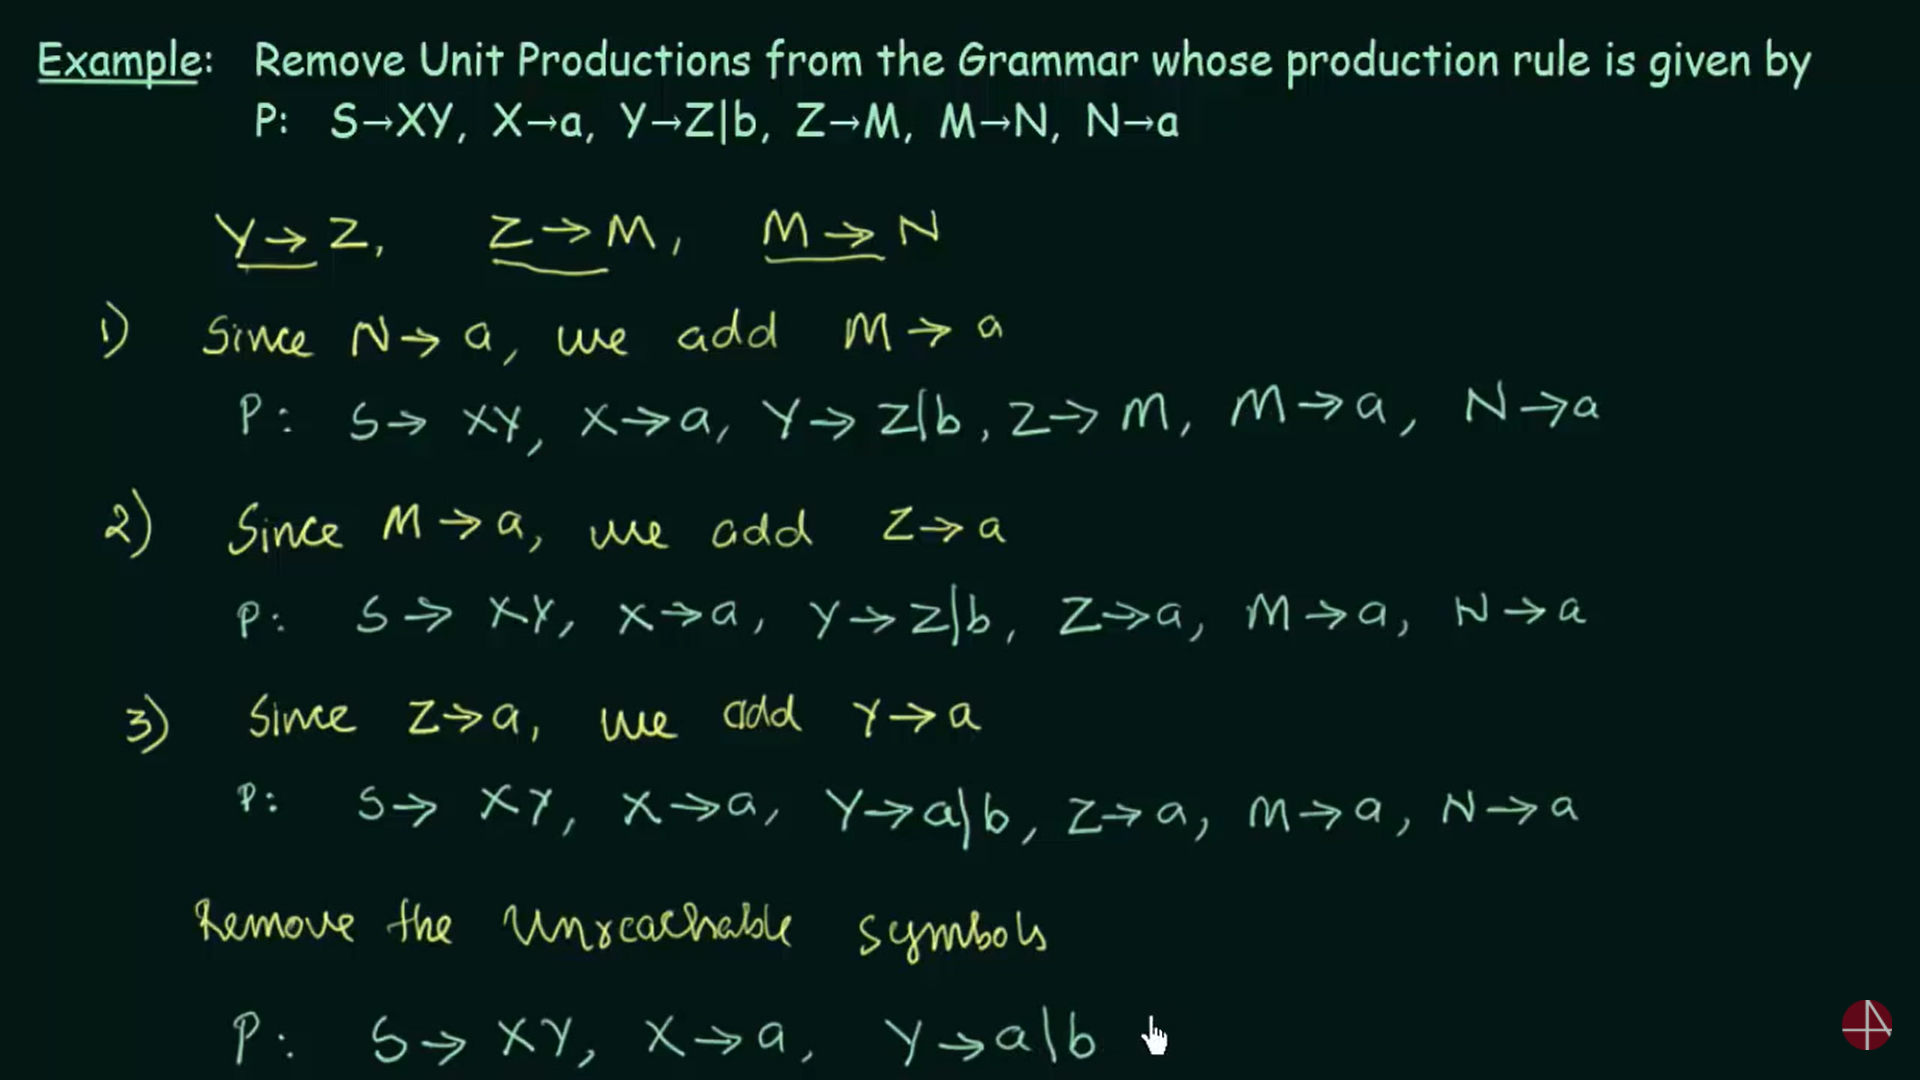 Example: Remove Unit Productions from the Grammar whose production rule is given by
P: S→XY, X→a, Y→Z|b, Z→M, M→N, N→a
Y→Z, Z→M, M→N
1) Since N→a, we add M→a
P: S→ XY, X→a, Y→ Z|b, Z→ M, M→a, N→a
2) Since M→a, we add Z→a
P: S→ XY, X→a, Y→Z|b, Z→a, M→a, N→a
3) Since Z→a, we add Y→a
P: S→ XY, X→a, Y→a|b, Z→a, M→a, N→a
Remove the Unreachable symbols
P: S→ XY, X→a, Y→a|b